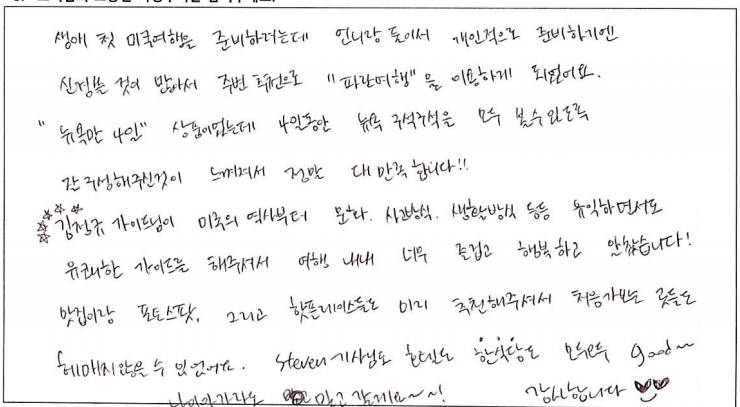 생애 첫 미국여행을 준비하려는데 언니랑 둘이서 개인적으로 준비하기엔
신경쓸 것이 많아서 주변 추천으로 "파란여행"을 이용하게 되었어요.
"뉴욕만 4일" 상품이었는데 4일동안 뉴욕 구석구석을 모두 볼 수 있도록
잘 구성해주신것이 느껴져서 정말 대만족합니다!!
가이드님이 미국의 역사부터 문화, 사고방식, 생활방식 등등 유익하면서도
유쾌한 가이드를 해주셔서 여행 내내 너무 즐겁고 행복하고 알찼습니다!
맛집이랑 포토스팟, 그리고 핫플레이스들도 미리 추천해주셔서 처음가보는 곳들도
헤매지않을 수 있었어요. Steven 기사님도 호텔도 한식당도 모두모두 good~
믿고 갈게요~~! 감사합니다 ♥♥